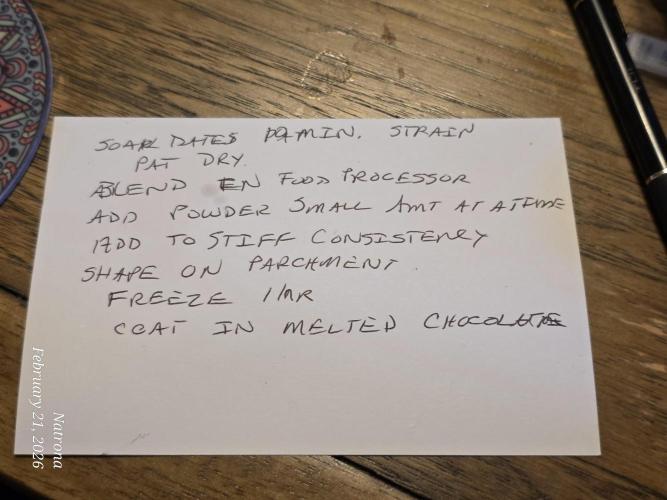 SOAK DATES MIN. STRAIN
PAT DRY.
BLEND IN FOOD PROCESSOR
ADD POWDER SMALL AMT AT A TIME
ADD TO STIFF CONSISTENCY
SHAPE ON PARCHMENT.
FREEZE 1 HR
COAT IN MELTED CHOCOLATE
February 21, 2026
Natrona